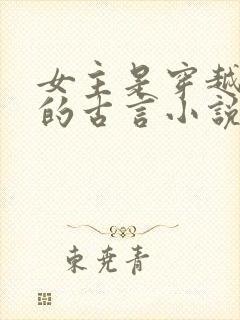 女主是穿越
的古言小说
東尭青